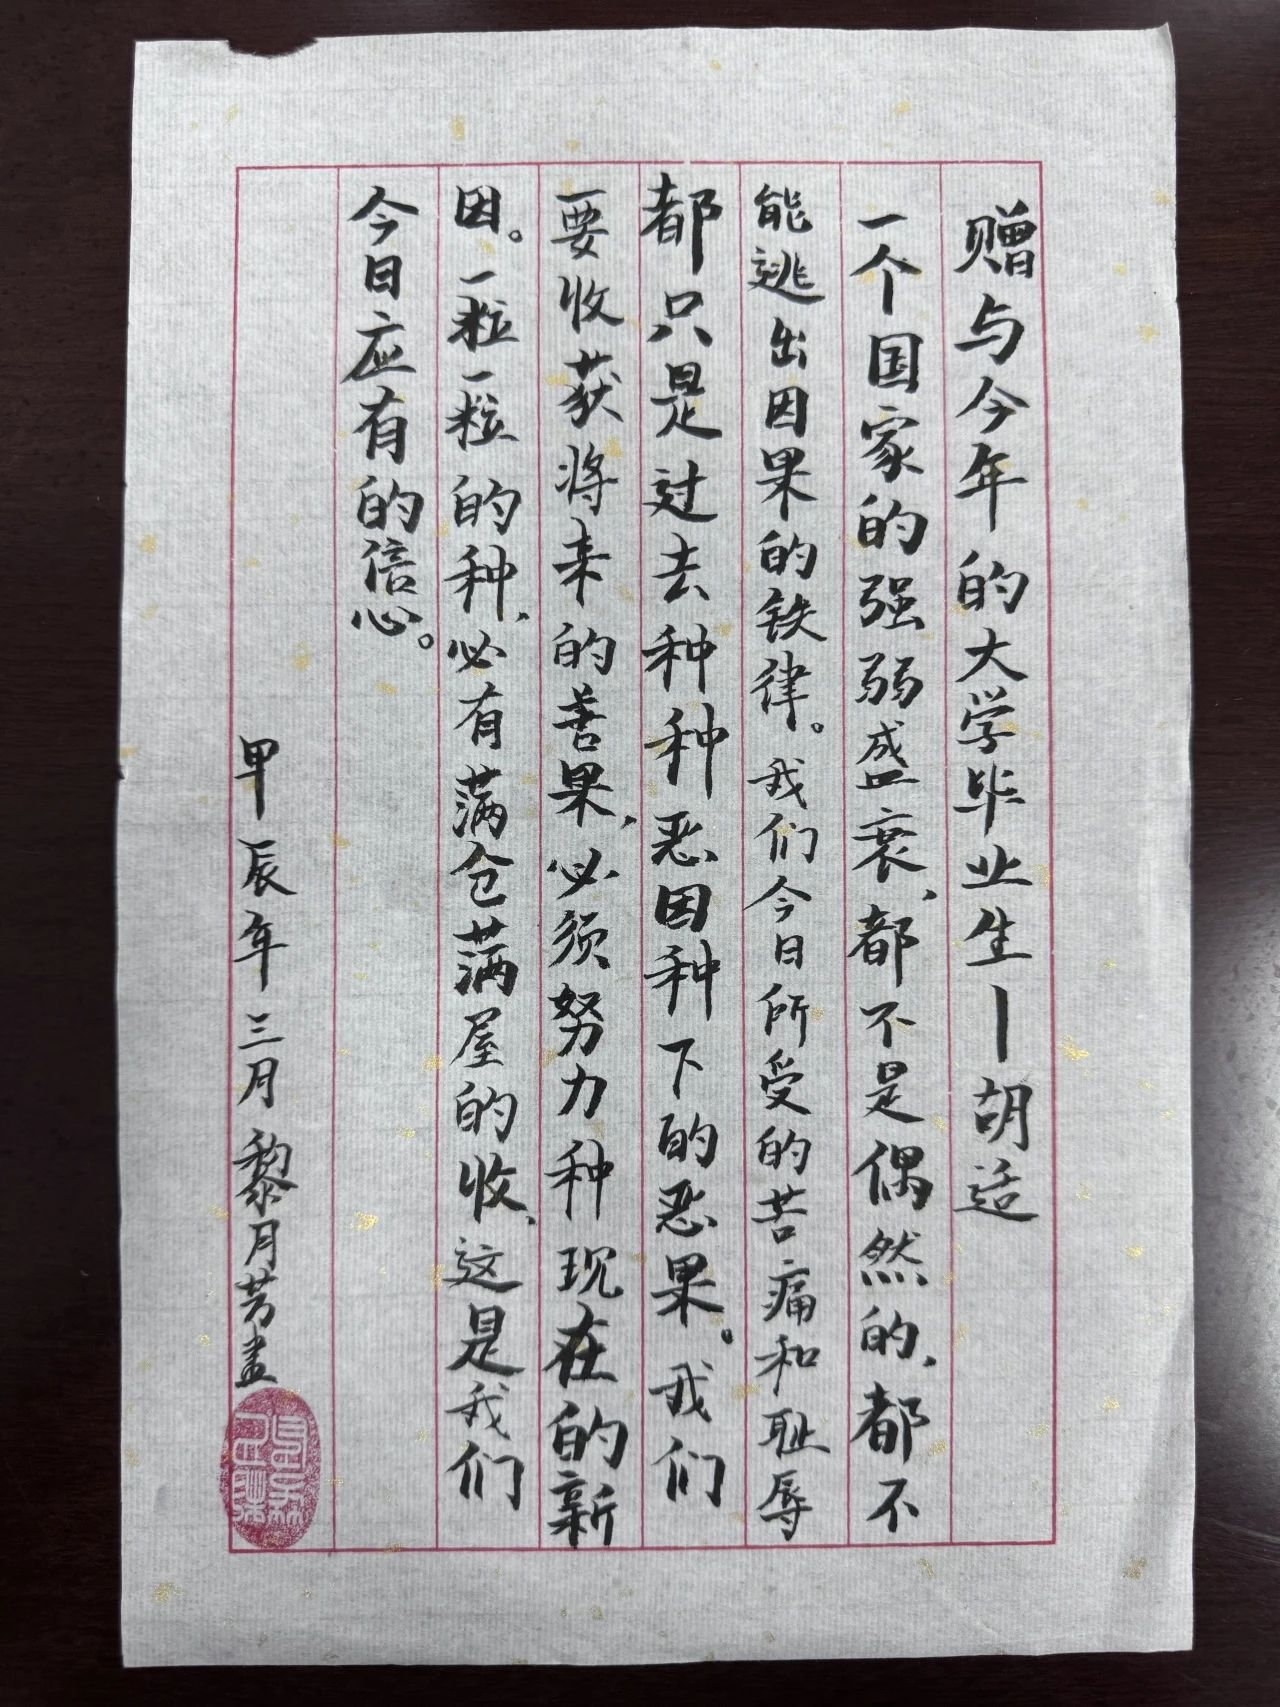 赠与今年的大学毕业生—胡适
一个国家的强弱盛衰，都不是偶然的，都不
能逃出因果的铁律。我们今日所受的苦痛和耻辱
都只是过去种种恶因种下的恶果。我们
要收获将来的善果，必须努力种现在的新
因。一粒一粒的种，必有满仓满屋的收，这是我们
今日应有的信心。
甲辰年三月黎月芳